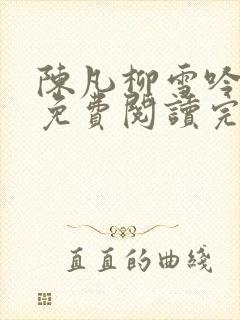 陳凡柳雪吟
免費閱讀完
直直的曲綫